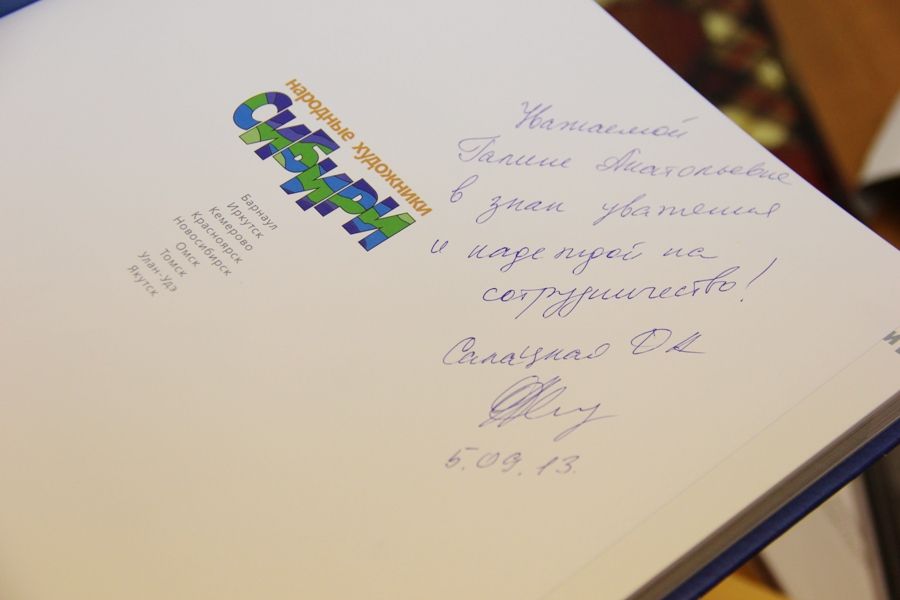 народные художники
СИБИРИ
Барнаул
Иркутск
Кемерово
Красноярск
Новосибирск
Омск
Томск
Улан-Удэ
Якутск
Уважаемой
Галине Анатольевне
в знак уважения
и надеждой на
сотрудничество!
5.09.13.